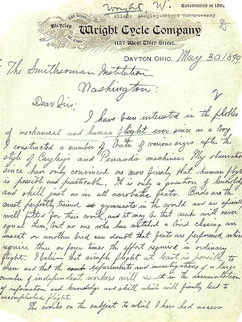 Wright, W.
Established in 1892.
Wright Cycle Company
1127 West Third Street.
DAYTON, OHIO, May 30, 1899
The Smithsonian Institution
Washington;
Dear Sirs;
I have been interested in the problem
of mechanical and human flight ever since as a boy
I constructed a number of bats of various sizes after the
style of Cayley's and Penaud's machines. My observations
since have only convinced me more firmly that human flight
is possible and practicable. It is only a question of knowledge
and skill just as in all acrobatic feats. Birds are the
most perfectly trained gymnasts in the world and are specially
well fitted for their work, and it may be that man will never
equal them, but no one who has watched a bird chasing an
insect or another bird can doubt that feats are performed which
require three or four times the effort required in ordinary
flight. I believe that simple flight at least is possible to
man and that the experiments and investigations of a large
number of independent workers will result in the accumulation
of information and knowledge and skill which will finally lead to
accomplished flight.
The works on the subject to which I have had access